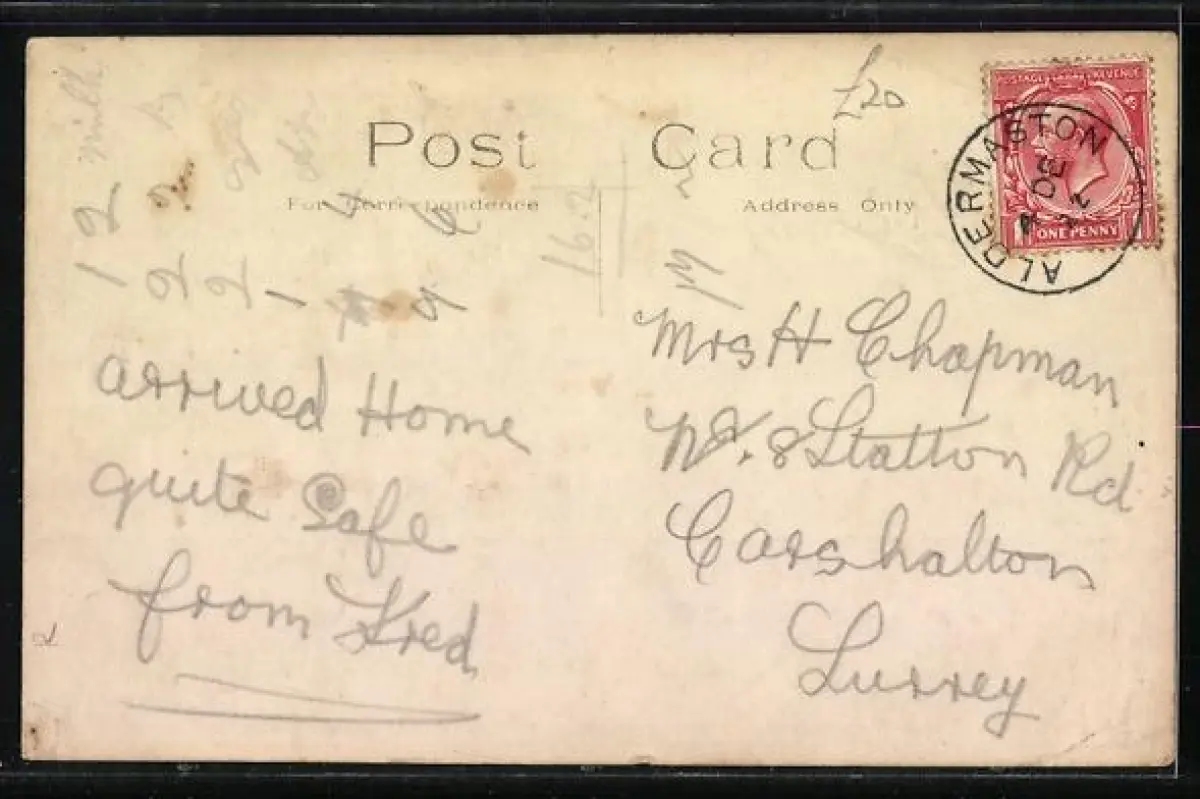 £20
POSTAGE REVENUE
Post Card
For Correspondence
Address Only
ALDERMASTON
DE
ONE PENNY
milk
16.2
arrived Home
quite Safe
from Fred
Mrs H Chapman
8 Statton Rd
Carshalton
Surrey